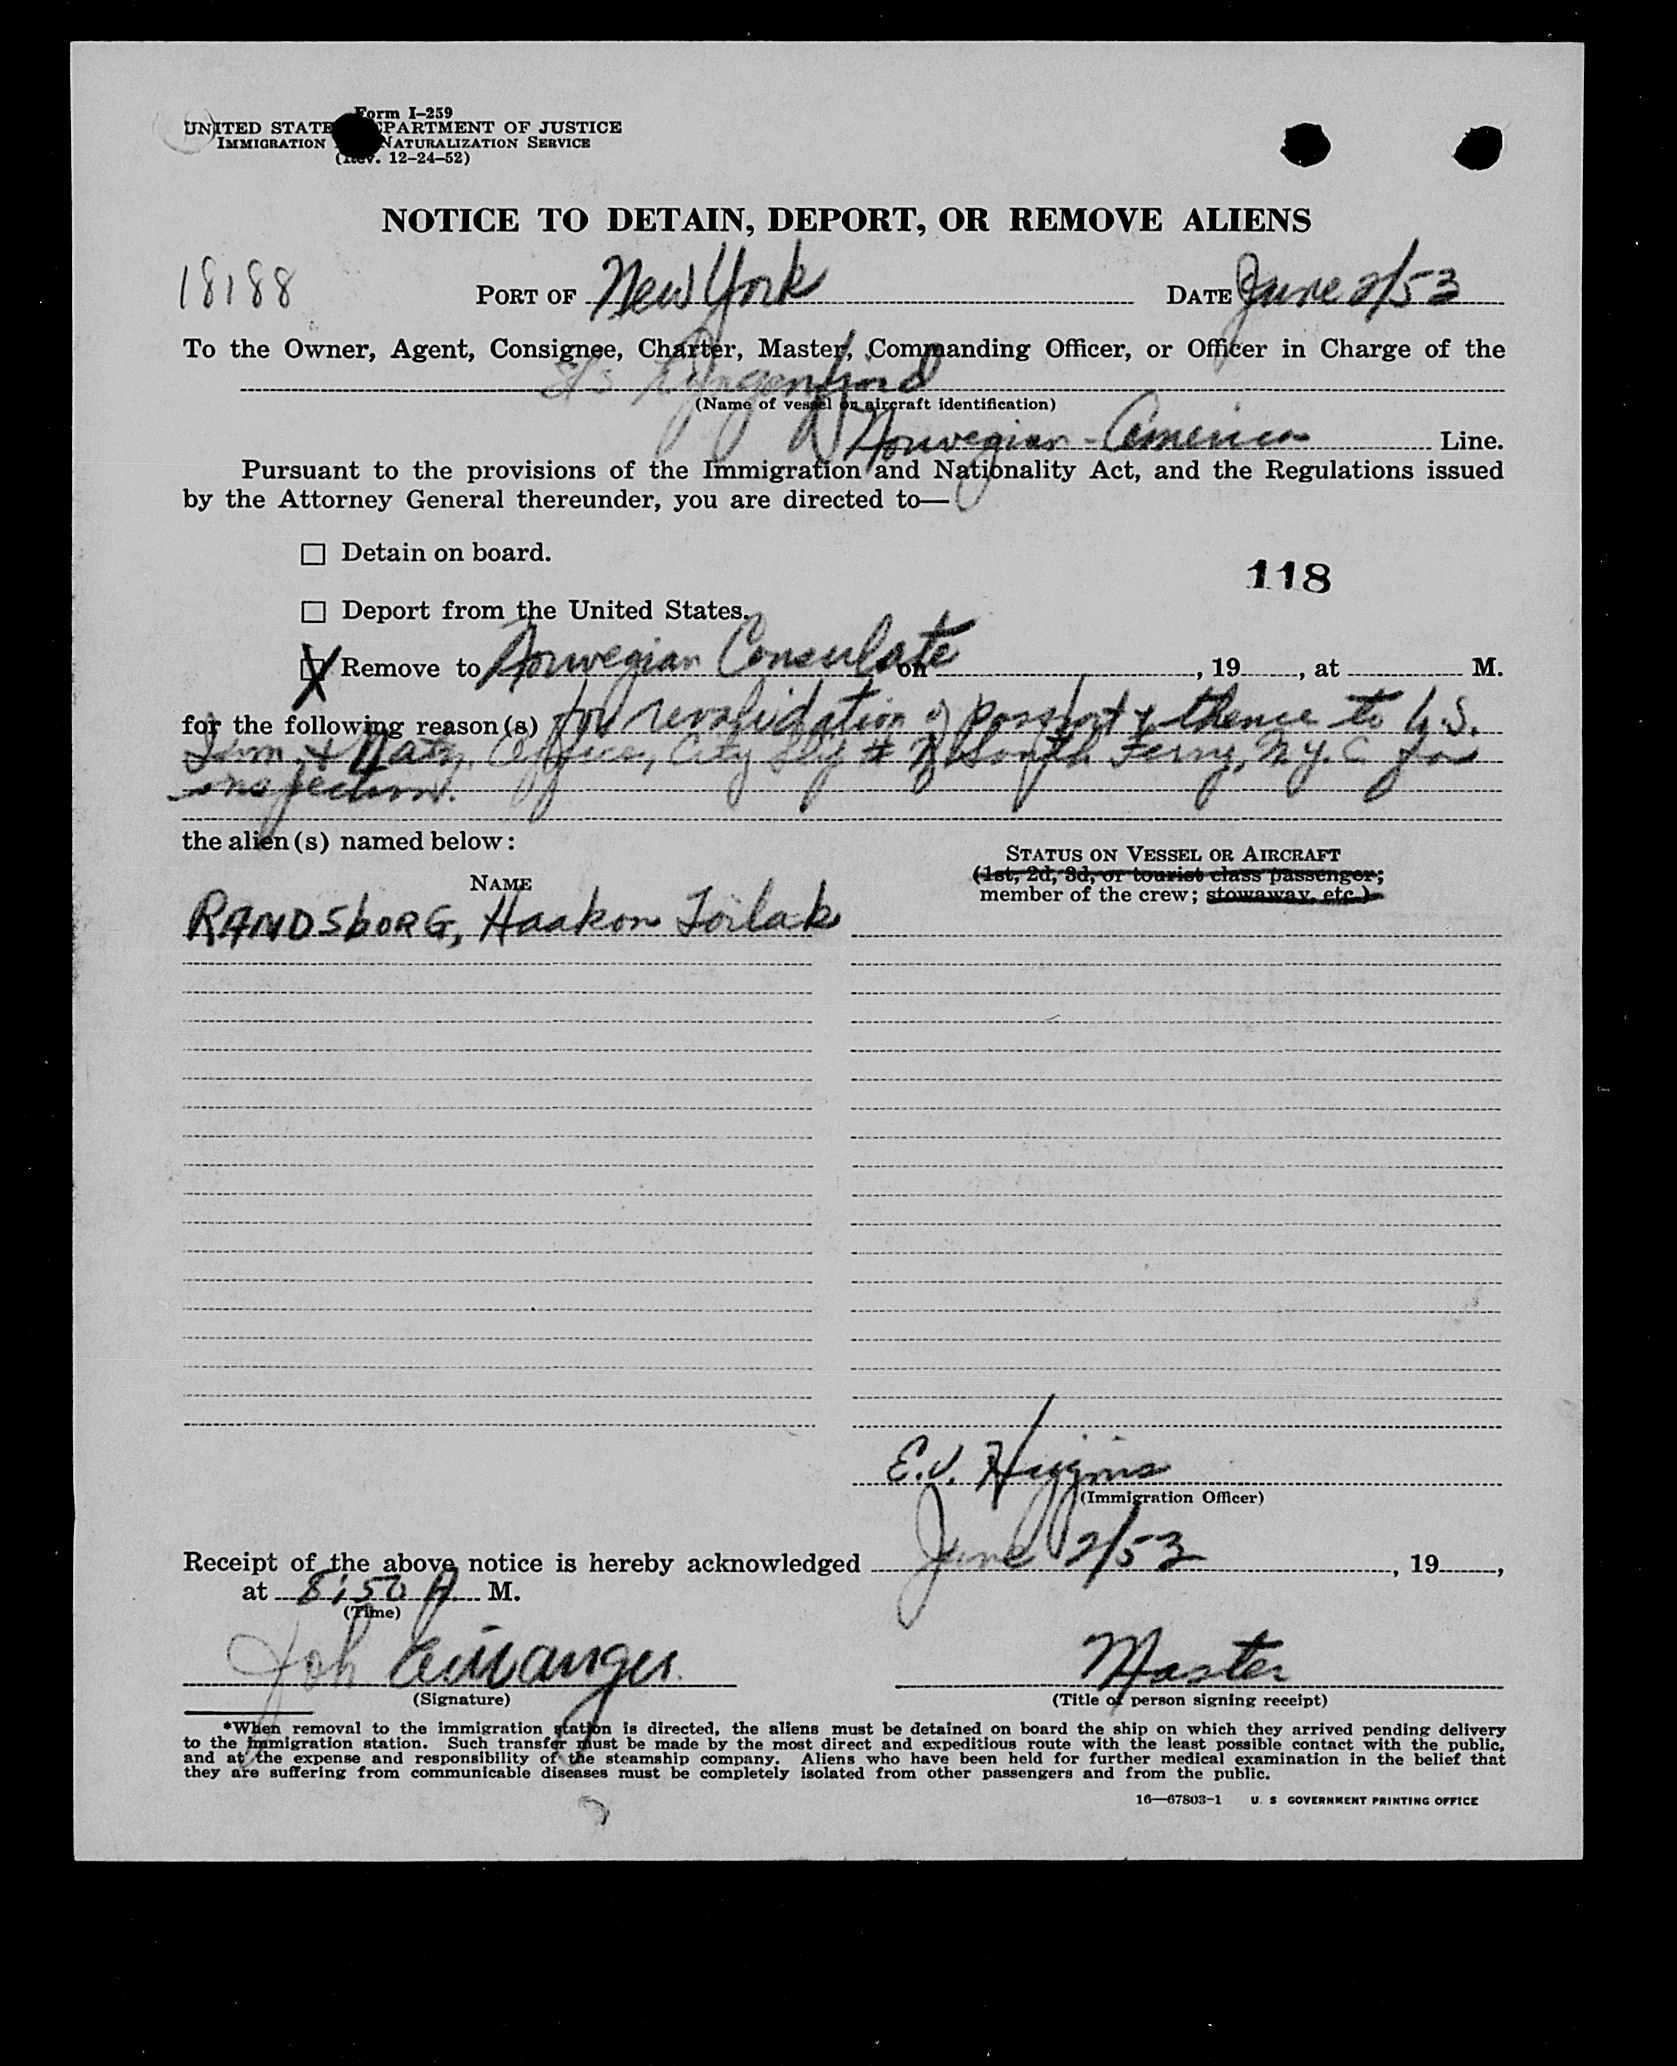 Form I-259
UNITED STATE DEPARTMENT OF JUSTICE
IMMIGRATION NATURALIZATION SERVICE
(Rev. 12-24-52)
NOTICE TO DETAIN, DEPORT, OR REMOVE ALIENS
18188 PORT OF New York DATE June 2/53
To the Owner, Agent, Consignee, Charter, Master, Commanding Officer, or Officer in Charge of the
(Name of vessel or aircraft identification)
Norwegian-America Line.
Pursuant to the provisions of the Immigration and Nationality Act, and the Regulations issued
by the Attorney General thereunder, you are directed to—
☐ Detain on board.
118
☐ Deport from the United States.
X Remove to Norwegian Consulate on , 19 , at M.
for the following reason(s) for revalidation of passport & thence to U.S.
Imm. & Natz. Office, City South Ferry, N.Y.C. for
inspection.
the alien(s) named below:
STATUS ON VESSEL OR AIRCRAFT
(1st, 2d, 3d, or tourist class passenger;
member of the crew; stowaway, etc.)
NAME
RANDSbORG, Haakon Torlak
E.V. Higgins
(Immigration Officer)
Receipt of the above notice is hereby acknowledged June 2/53, 19 ,
at 8:50 A M.
(Time)
Joh Master
(Signature) (Title of person signing receipt)
*When removal to the immigration station is directed, the aliens must be detained on board the ship on which they arrived pending delivery
to the immigration station. Such transfer must be made by the most direct and expeditious route with the least possible contact with the public,
and at the expense and responsibility of the steamship company. Aliens who have been held for further medical examination in the belief that
they are suffering from communicable diseases must be completely isolated from other passengers and from the public.
16—67803-1 U. S GOVERNMENT PRINTING OFFICE